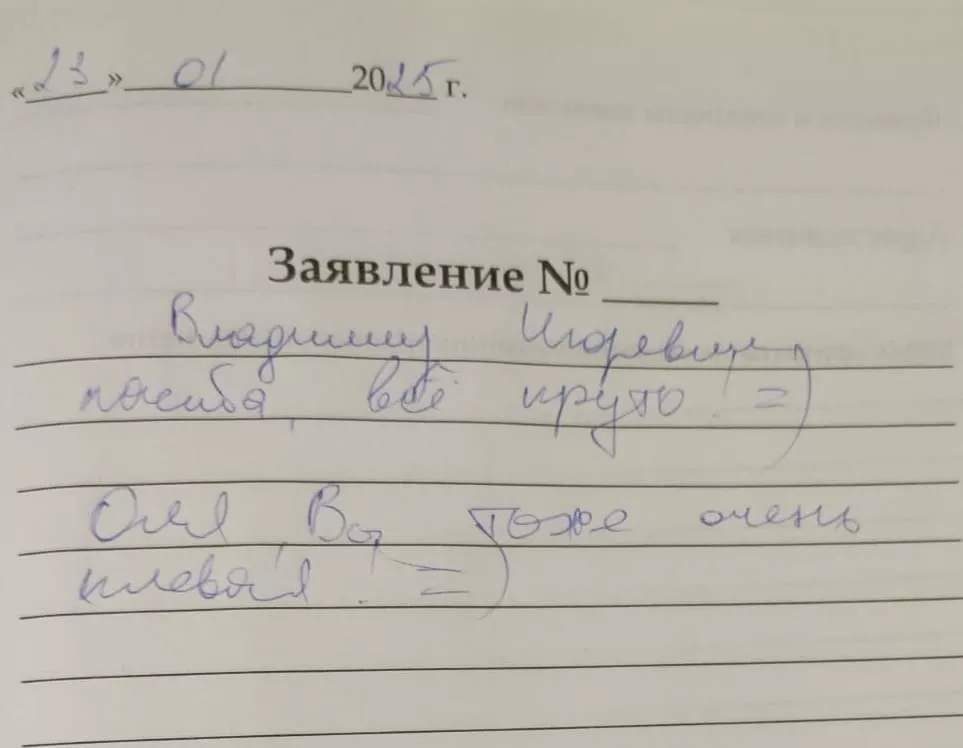 «23» 01 2025 г.
Заявление №
Владимиру Игоревичу
пасиба, всё круто! =)
Оля, Вы тоже очень
клевая! =)